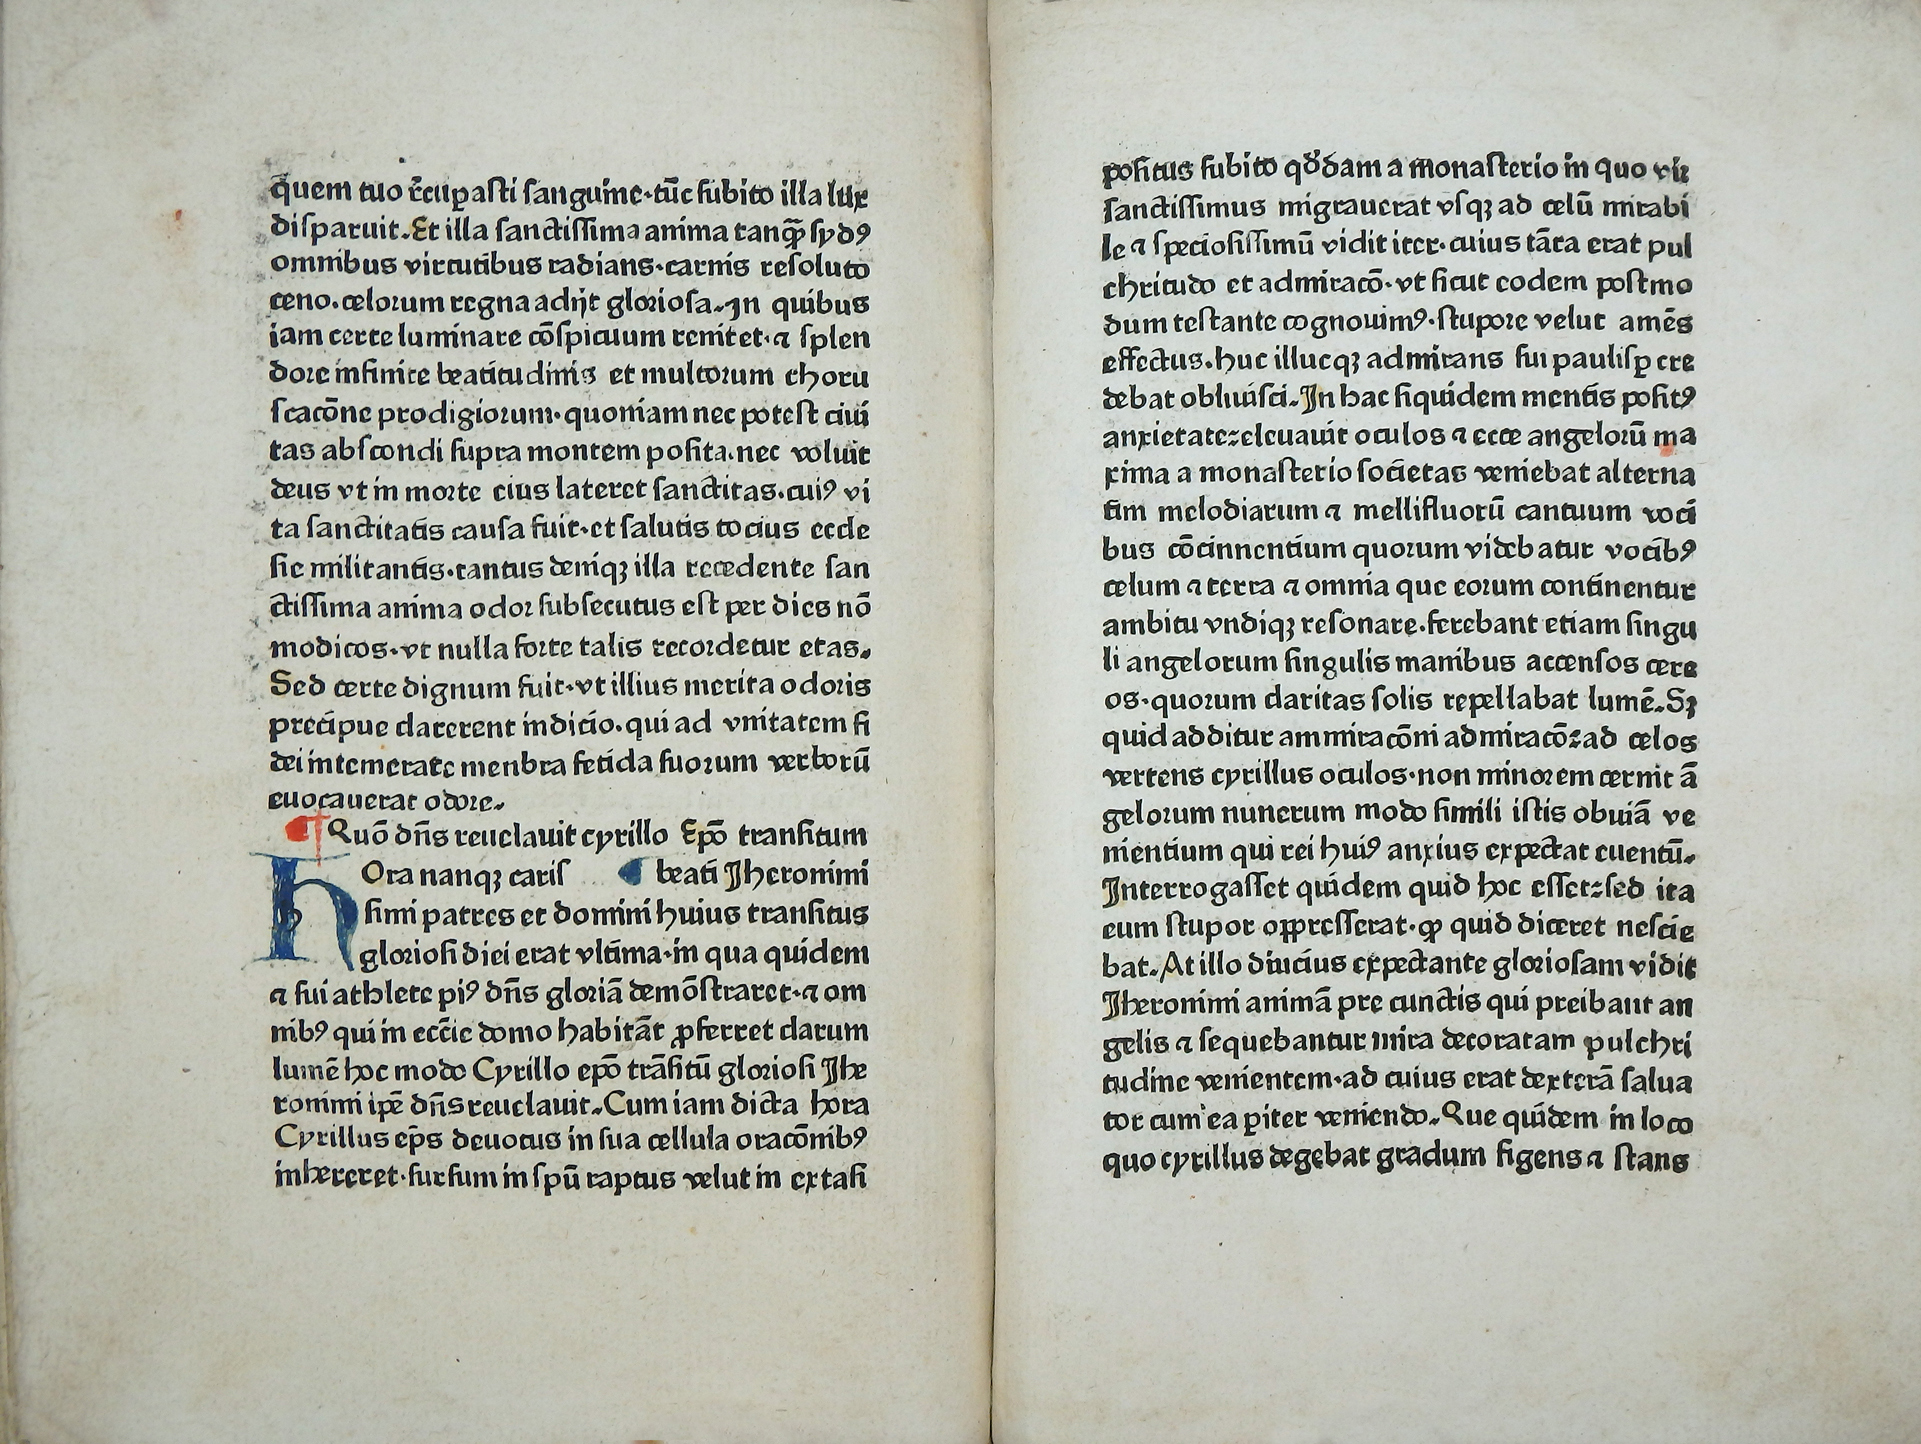 quem tuo r̄cuꝑasti sanguine·tūc subito illa lux
disparuit. Et illa sanctissima anima tanqꝫ̄ sydꝰ
omnibus virtutibus radians·carnis resoluto
ceno. celorum regna adijt gloriosa. In quibus
iam certe luminare cōspicuum renitet·⁊ splen
dore infinite beatitudinis et multorum choru
scacōne prodigiorum·quoniam nec potest ciui
tas abscondi supra montem posita. nec voluit
deus vt in morte eius lateret sanctitas·cuiꝰ vi
ta sanctitatis causa fuit·et salutis tocius eccle
sie militantis·tantus deniqꝫ illa recedente san
ctissima anima odor subsecutus est per dies nō
modicos·vt nulla forte talis recordetur etas.
Sed certe dignum fuit·vt illius merita odoris
precipue clarerent indicio. qui ad vnitatem fi
dei intemerate menbra fetida suorum verborū
euocauerat odore.
¶ Quō dn̄s reuelauit cyrillo Epō transitum
beati Jheronimi
Hora nanqꝫ caris
simi patres et domini huius transitus
gloriosi diei erat vltima·in qua quidem
⁊ sui athlete piꝰ dn̄s gloriā demōstraret·⁊ om
nibꝰ qui in ecc̄ie domo habitāt ꝓferret clarum
lumē hoc modo Cyrillo epō trāsitū gloriosi Jhe
ronimi ip̄e dn̄s reuelauit. Cum iam dicta hora
Cyrillus ep̄s deuotus in sua cellula oracōnibꝰ
inhereret·sursum in spū raptus velut in extasi
positus subito qd̄dam a monasterio in quo vir
sanctissimus migrauerat vsqꝫ ad celū mirabi
le ⁊ speciosissimū vidit iter·cuius tāta erat pul
chritudo et admiracō·vt sicut eodem postmo
dum testante cognouimꝰ·stupore velut amēs
effectus. huc illucqꝫ admirans sui paulisꝑ cre
debat obliuisci. In hac siquidem mentis positꝰ
anxietate:eleuauit oculos ⁊ ecce angelorū ma
xima a monasterio societas veniebat alterna
tim melodiarum ⁊ mellifluorū cantuum voci
bus cōcinnentium quorum videbatur vocibꝰ
celum ⁊ terra ⁊ omnia que eorum continentur
ambitu vndiqꝫ resonare. ferebant etiam singu
li angelorum singulis manibus accensos cere
os·quorum claritas solis repellabat lumē. Sꝫ
quid additur ammiracōni admiracō:ad celos
vertens cyrillus oculos·non minorem cernit ā
gelorum nunerum modo simili istis obuiā ve
nientium qui rei huiꝰ anxius expectat euentū.
Interrogasset quidem quid hoc esset:sed ita
eum stupor oppresserat·ꝙ quid diceret nescie
bat. At illo diucius expectante gloriosam vidit
Jheronimi animā pre cunctis qui preibant an
gelis ⁊ sequebantur mira decoratam pulchri
tudine venientem·ad cuius erat dexterā salua
tor cum ea ꝑiter veniendo. Que quidem in loco
quo cyrillus degebat gradum figens ⁊ stans